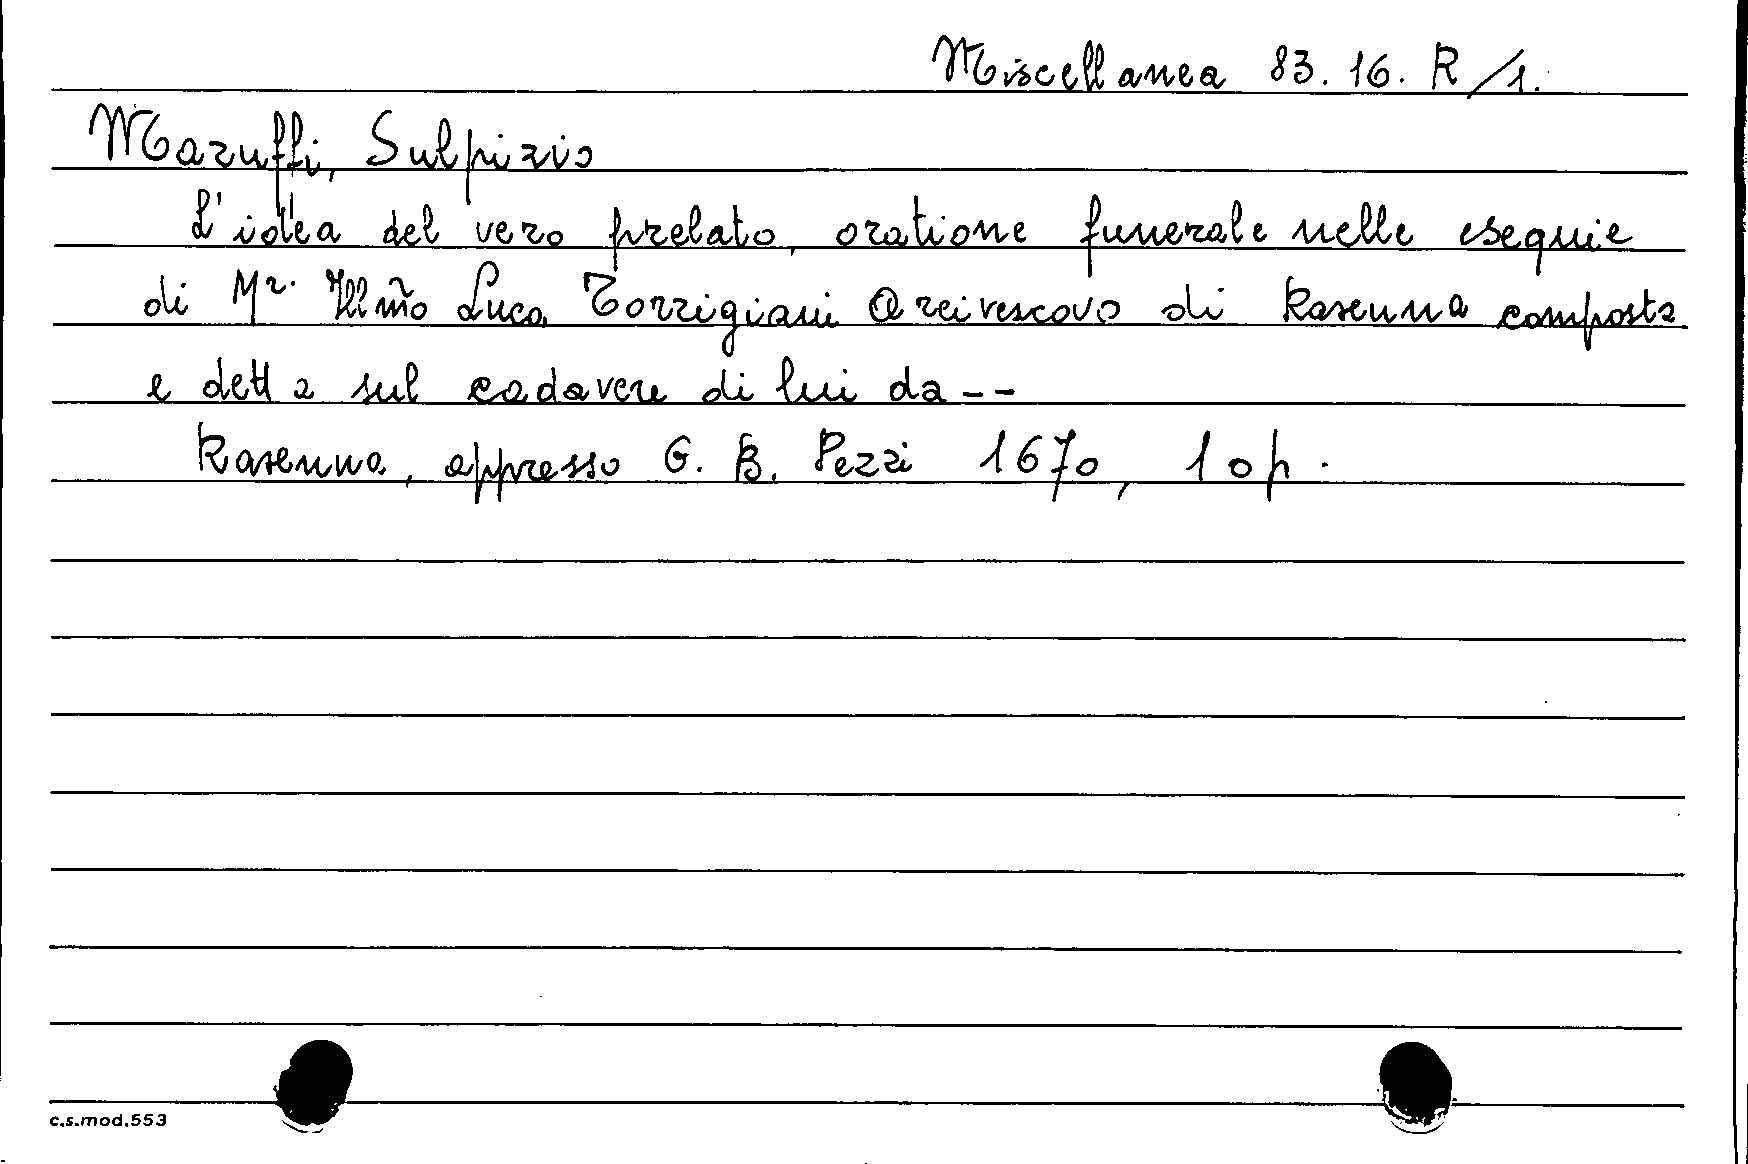 Miscellanea 83. 16. R /1.
Maruffi, Sulpizio
L'idea del vero prelato, oratione funerale nelle esequie
di Mr. Illm̃o Luca Torrigiani Arcivescovo di Ravenna composta
e detta sul cadavere di lui da --
Ravenna, appresso G. B. Pezzi 1670, 10 p.
c.s.mod.553